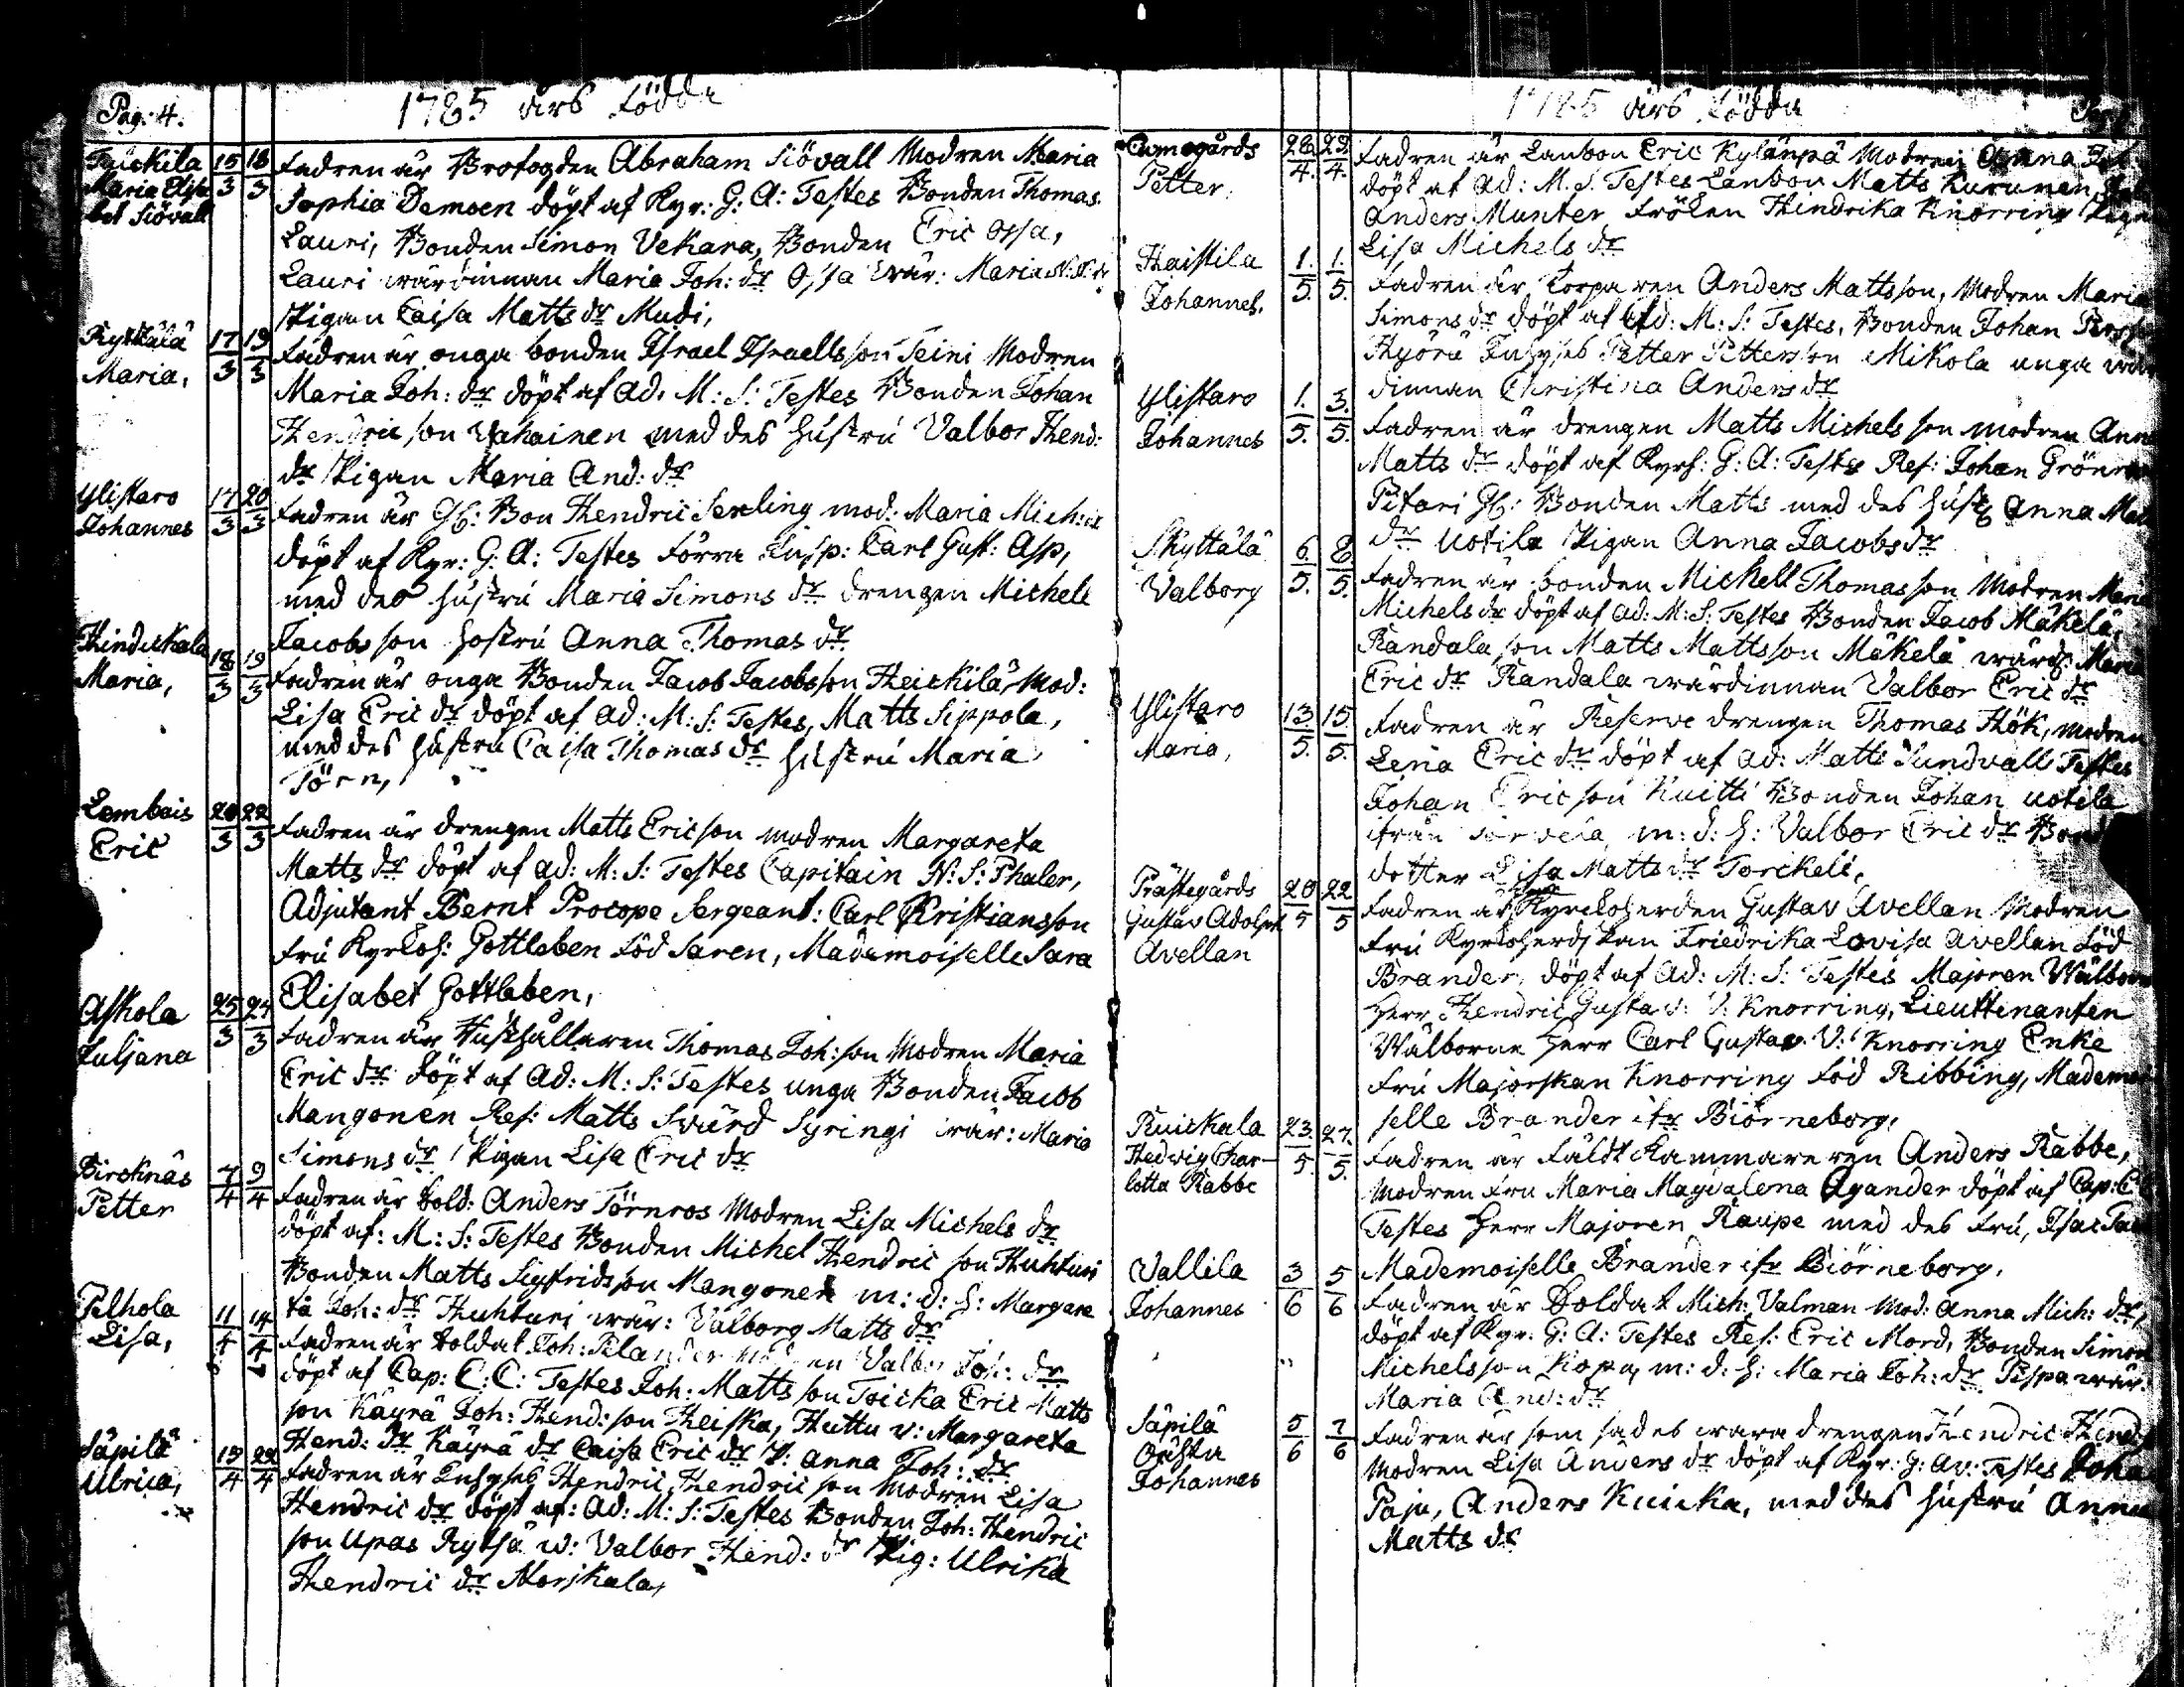 Pag: 4.
1785 års Födde
Maria Elisa
bet Siövall
15/3 18/3
Fadren är Brofogden Abraham Siövall Modren Maria
Sophia Demoen döpt af Kyr: G: A: Testes Bonden Thomas
Lauri, Bonden Simon Vekara, Bonden Eric Ossa,
Lauri wärdinnan Maria Joh: dr Ossa wär: Maria
Pigan Caisa Matts dr Mudi,
Kyttälä
Maria,
17/3 19/3
Fadren är onga bonden Israel Israelsson Seini Modren
Maria Joh: dr döpt af Ad. M: S: Testes Bonden Johan
Hendricson Vahainen med des hustru Valbor Hend:
dr Pigan Maria And: dr
Ylistaro
Johannes
17/3 20/3
Fadren är Gl: Bon Hendric Serling mod: Maria Mich: dr
döpt af Kyr: G: A: Testes Förra Insp: Carl Gust: Asp,
med des hustru Maria Simons dr drengen Michell
Jacobsson hostru Anna Thomas dr
Maria,
18/3 19/3
Fadren är onga Bonden Jacob Jacobsson Heickilä, Mod:
Lisa Eric dr döpt af Ad: M: S: Testes, Matts Sippola,
med des hustru Caisa Thomas dr hustru Maria
Törn,
Lembois
Eric
20/3 22/3
Fadren är drengen Matts Ericson modren Margareta
Matts dr döpt af Ad: M: S: Testes Capitain N: S: Thaler,
Adjutant Bernt Procope Sergeant: Carl Kristiansson
Fru Kyrkoh: Gottleben Föd Saren, Mademoiselle Sara
Elisabet Gottleben,
Askola
Juljana
25/3 27/3
Fadren är Hushållaren Thomas Joh: son Modren Maria
Eric dr döpt af Ad: M: S: Testes unga Bonden Jacob
Mangonen Res: Matts Svärd Syringi wär: Maria
Simons dr Pigan Lisa Eric dr
Bircknäs
Petter
7/4 9/4
Fadren är Sold: Anders Törnros Modren Lisa Michels dr
döpt af: M: S: Testes Bonden Michel Hendric son Huhturi
Bonden Matts Sigfridsson Mangonen m: d: h: Margare
ta Joh: dr Huhturi wär: Valborg Matts dr
Pelhola
Lisa,
11/4 14/4
Fadren är Soldat Joh: Pelander Modren Valbor Joh: dr
döpt af Cap: C: C: Testes Joh: Matts son Toicka Eric Matts
son Käyrä Joh: Hend: son Heiska, Huttu v: Margareta
Hend: dr Käyrä dr Caisa Eric dr P: Anna Joh: dr
Säpilä
Ulrica,
19/4 22/4
Fadren är Inhyses Hendric Hendricson Modren Lisa
Hendric dr döpt af: Ad: M: S: Testes Bonden Joh: Hendric
son Upas Rytsä w: Valbor Hend: dr Pig: Ulrika
Hendric dr Norjkala,
1785 års Födde
Cumogårds
Petter
28/4. 29/4.
Fadren är Lanbon Eric Kylänpä Modren Anna
döpt af Ad: M. S. Testes Lanbon Matts Kurunen
Anders Munter, Fröken Hendrika Knorring Pigan
Lisa Michels dr
Haistila
Johannes.
1./5. 1./5.
Fadren är Torparen Anders Mattsson, Modren Maria
Simons dr döpt af Ad: M: S: Testes, Bonden Johan
Hyörä Inhyses Petter Petterson Mikola unga wär
dinnan Christina Anders dr
Ylistaro
Johannes
1./5. 3./5.
Fadren är drengen Matts Michelsson modren Anna
Matts dr döpt af Kyrh: G: A: Testes Res: Johan Grönroos
Pitari Gl: Bonden Matts med des hust Anna Matts
dr Uotila Pigan Anna Jacobs dr
Skyttälä
Valborg
6./5. 8/5.
Fadren är bonden Michell Thomasson Modren Maria
Michels dr döpt af Ad: M: S: Testes Bonden Jacob Mäkelä,
Randala son Matts Mattsson Mäkelä wärd: Maria
Eric dr Randala wärdinnan Valbor Eric dr
Ylistaro
Maria,
13./5. 15./5.
Fadren är Reserve drengen Thomas Hök, modren
Lena Eric dr döpt af Ad: Matts Sundvall Testes
Johan Ericson Kuitti Bonden Johan Uotila
ifrån m: d: h: Valbor Eric dr Bond
dotter Lisa Matts dr Torckeli,
Prästegårds
Gustav Adolph
Avellan
20/5 22/5
Fadren är Kyrckoherden Gustav Avellan Modren
Fru Kyrkoherdskan Friedrika Lovisa Avellan Föd
Brander, döpt af Ad: M: S: Testes Majoren Wälborne
Herr Hendric Gustav: V: Knorring, Lieuttenanten
Wälborne Herr Carl Gustav: V: Knorring Enke
Fru Majorskan Knorring Föd Ribbing, Mademoi
selle Brander ifr Biörneborg,
Ruickala
Hedvig Char-
lotta Rabbe
23./5. 27./5.
Fadren är Fäldt Kammareren Anders Rabbe,
Modren Fru Maria Magdalena Agander döpt af Cap: C
Testes Herr Majoren Raupe med des Fru, Isac
Mademoiselle Brander ifr Biörneborg.
Vallila
Johannes
3/6 5/6
Fadren är Soldat Mich: Valman Mod: Anna Mich: dr,
döpt af Kyr: G: A: Testes Res: Eric Mord, Bonden Simon
Michelsson Kopa, m: d: h: Maria Joh: dr Pispa wär:
Maria And: dr
Säpilä
Oästa
Johannes
5/6 7/6
Fadren är som sades wara drengen Hendric Hend
Modren Lisa Anders dr döpt af Kyr: G: Av: Testes Joha
Paju, Anders Kuicka, med des hustru Anna
Matts dr